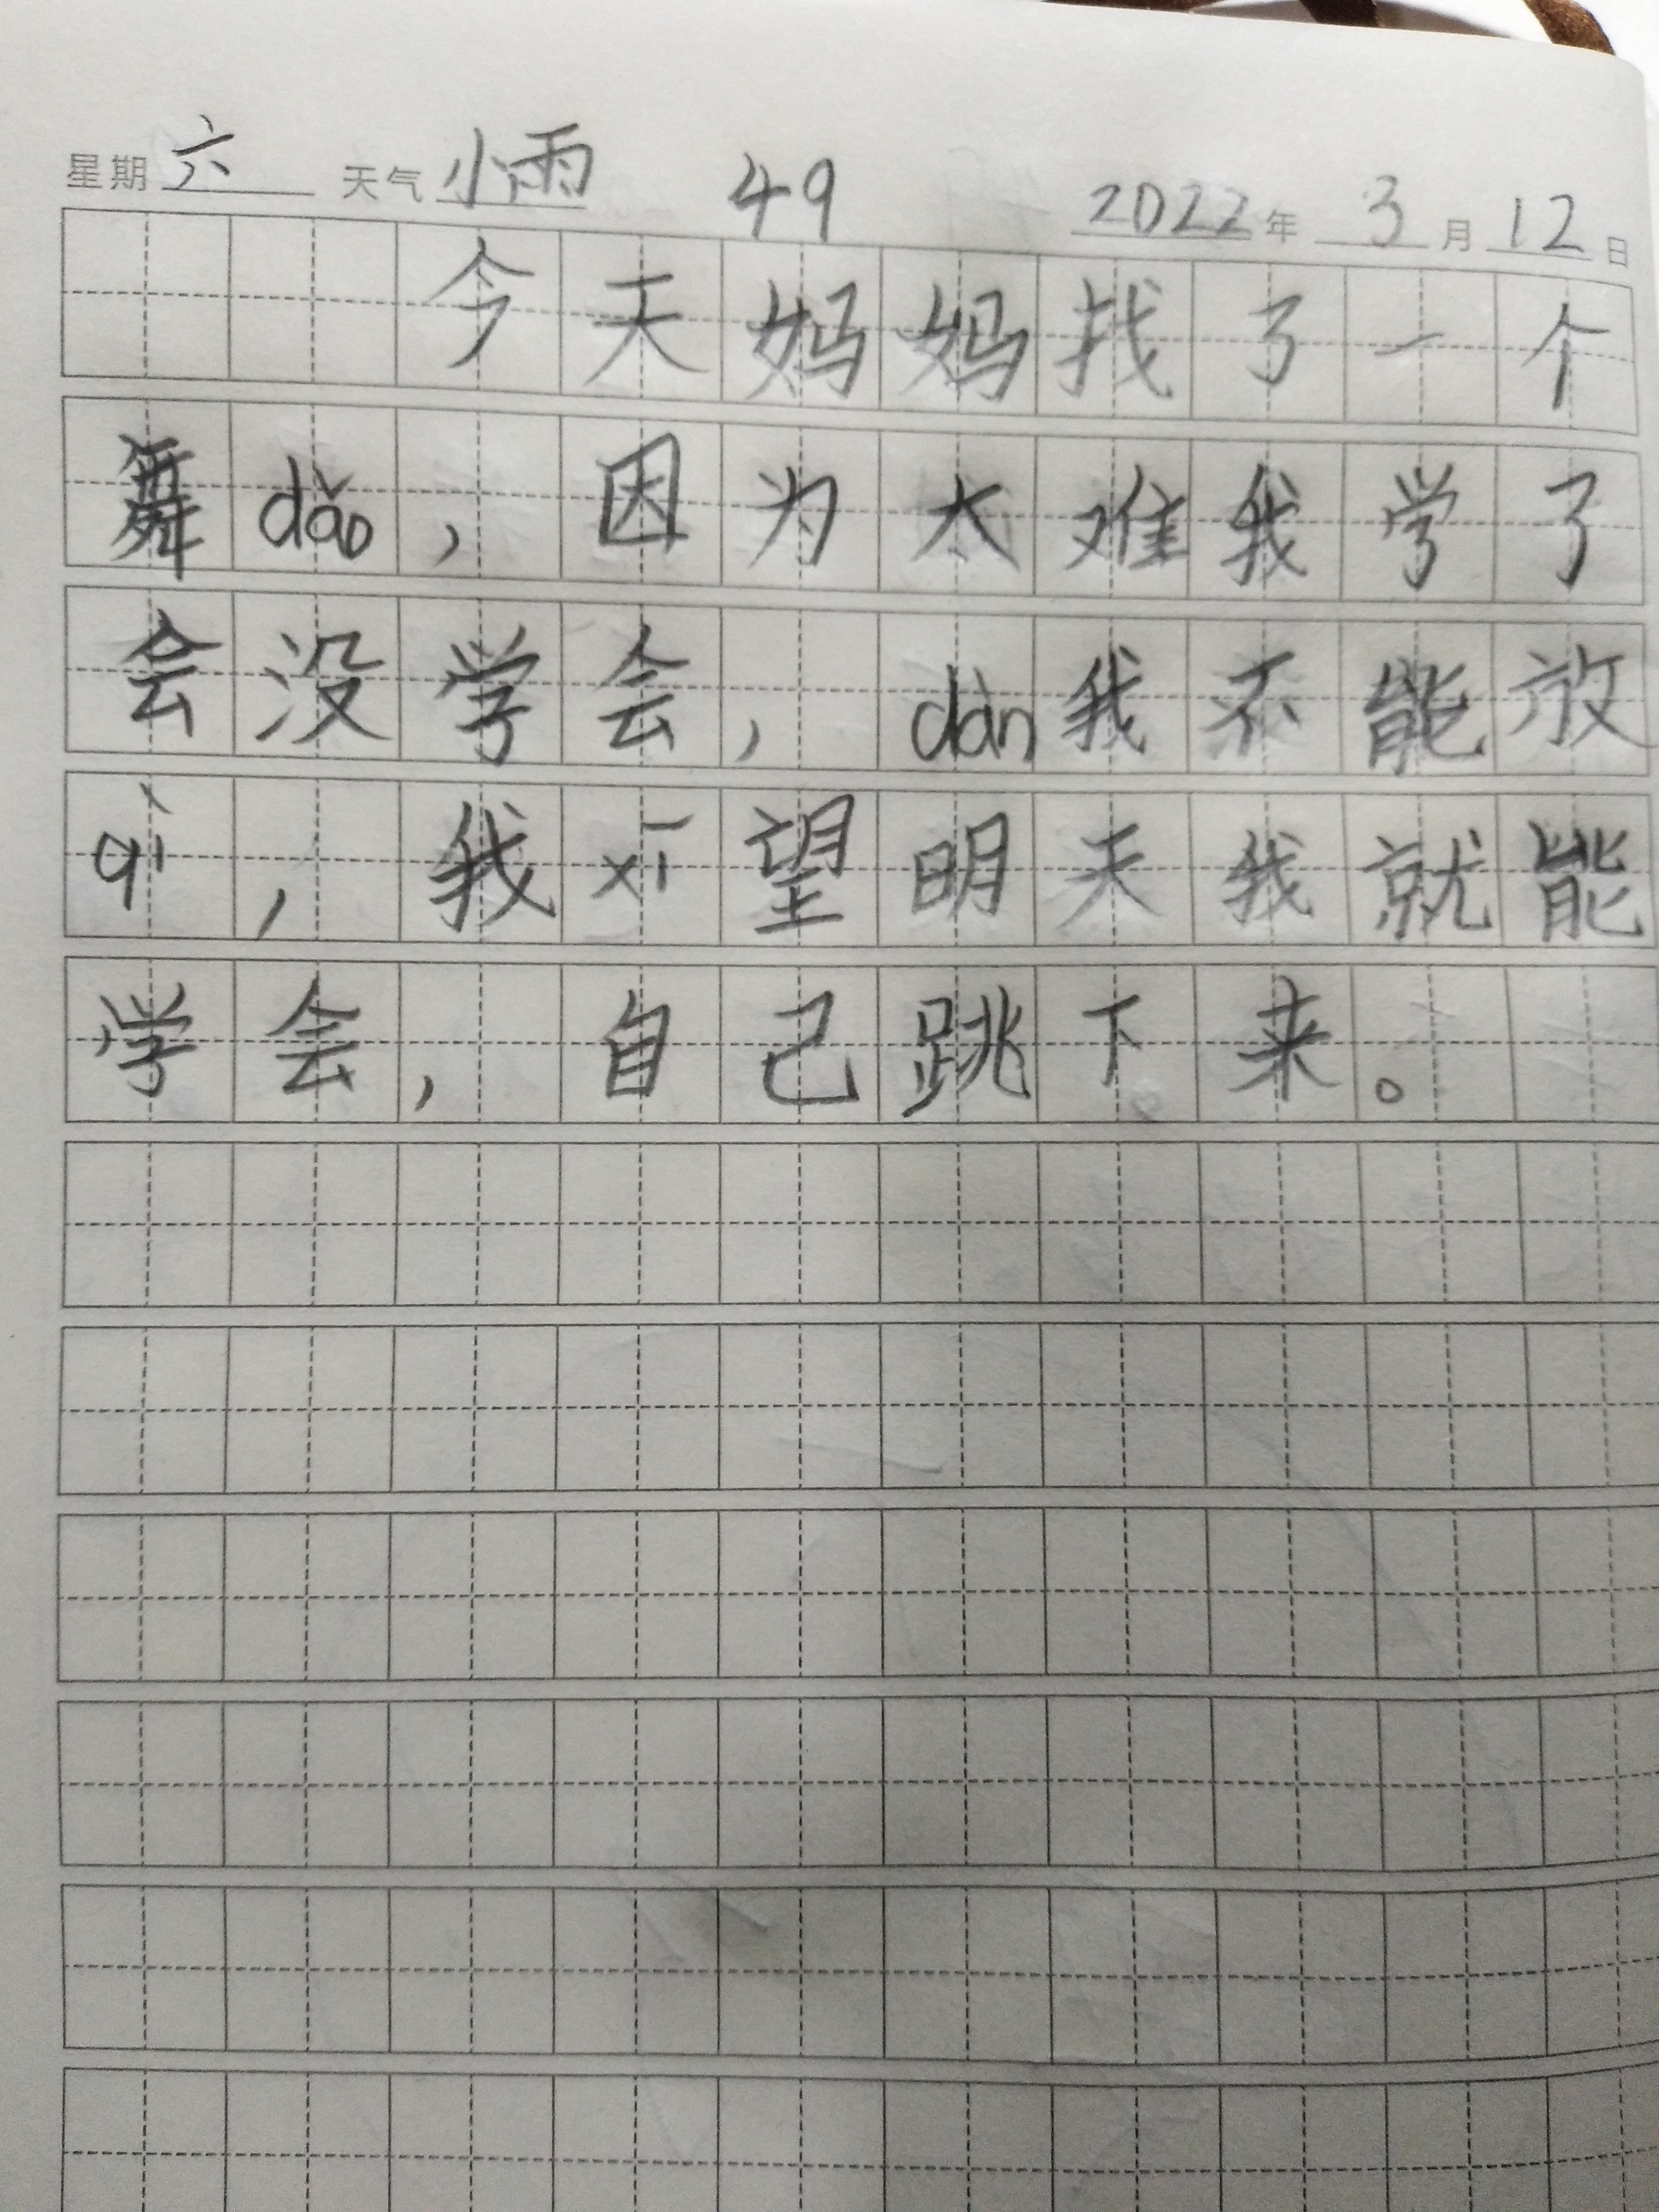 星期 六 天气 小雨 49 2022 年 3 月 12 日
今天妈妈找了一个
舞dǎo，因为太难我学了
会没学会，dàn我不能放
qì，我xī望明天我就能
学会，自己跳下来。